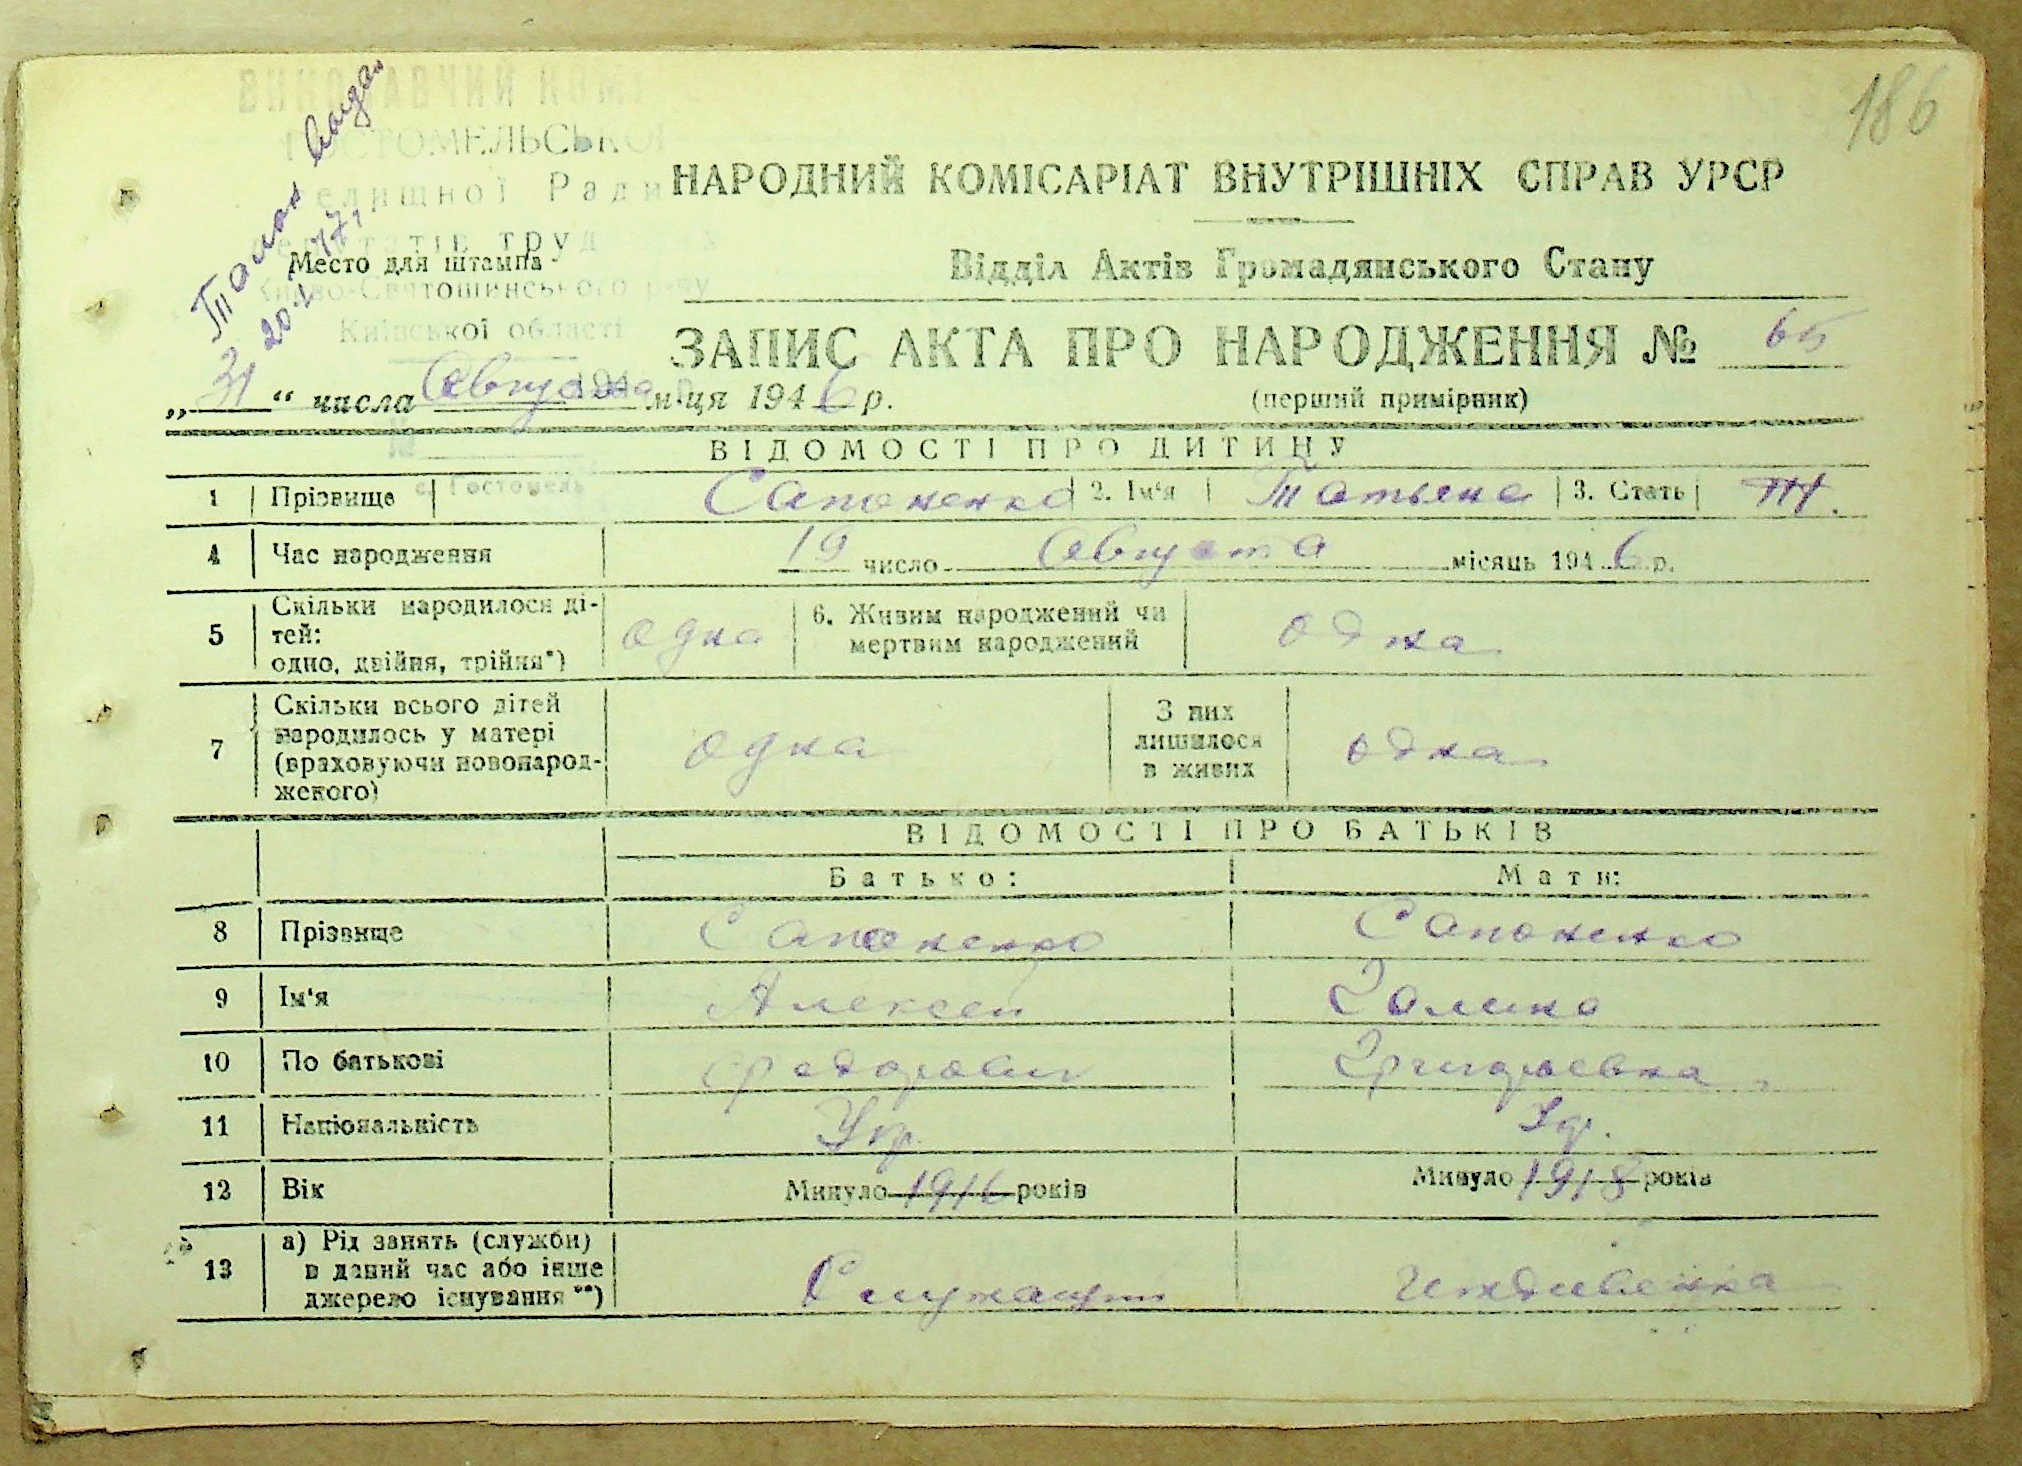 186
ВИКОНАВЧИЙ КОМ
ГОСТОМЕЛЬСЬКОЇ
елищної Ради
татів труд
Києво-Святошинського р-ну
Київської області
194 р.
№
с. Гостомель
20.I 47,
Место для штампа
НАРОДНИЙ КОМІСАРІАТ ВНУТРІШНІХ СПРАВ УРСР
Відділ Актів Громадянського Стану
ЗАПИС АКТА ПРО НАРОДЖЕННЯ № 65
„31“ числа Августа м-ця 1946 р.
(перший примірник)
ВІДОМОСТІ ПРО ДИТИНУ
1 Прізвище Сапоненко 2. Ім‘я Татьяна 3. Стать Ж.
4 Час народження 19 число Августа місяць 1946 р.
5 Скільки народилося ді-
тей:
одно, двійня, трійня*) одна
6. Живим народжений чи
мертвим народжений одна
7 Скільки всього дітей
народилось у матері
(враховуючи новонарод-
женого) одна
З них
лишилося
в живих одна
ВІДОМОСТІ ПРО БАТЬКІВ
Батько: Мати:
8 Прізвище Сапоненко Сапоненко
9 Ім‘я Алексей Галина
10 По батькові Федорович Григорьевна
11 Національність Укр. Ук.
12 Вік Минуло 1916 років Минуло 1918 років
13 а) Рід занять (служби)
в даний час або інше
джерело існування **) Служащий Иждивенка